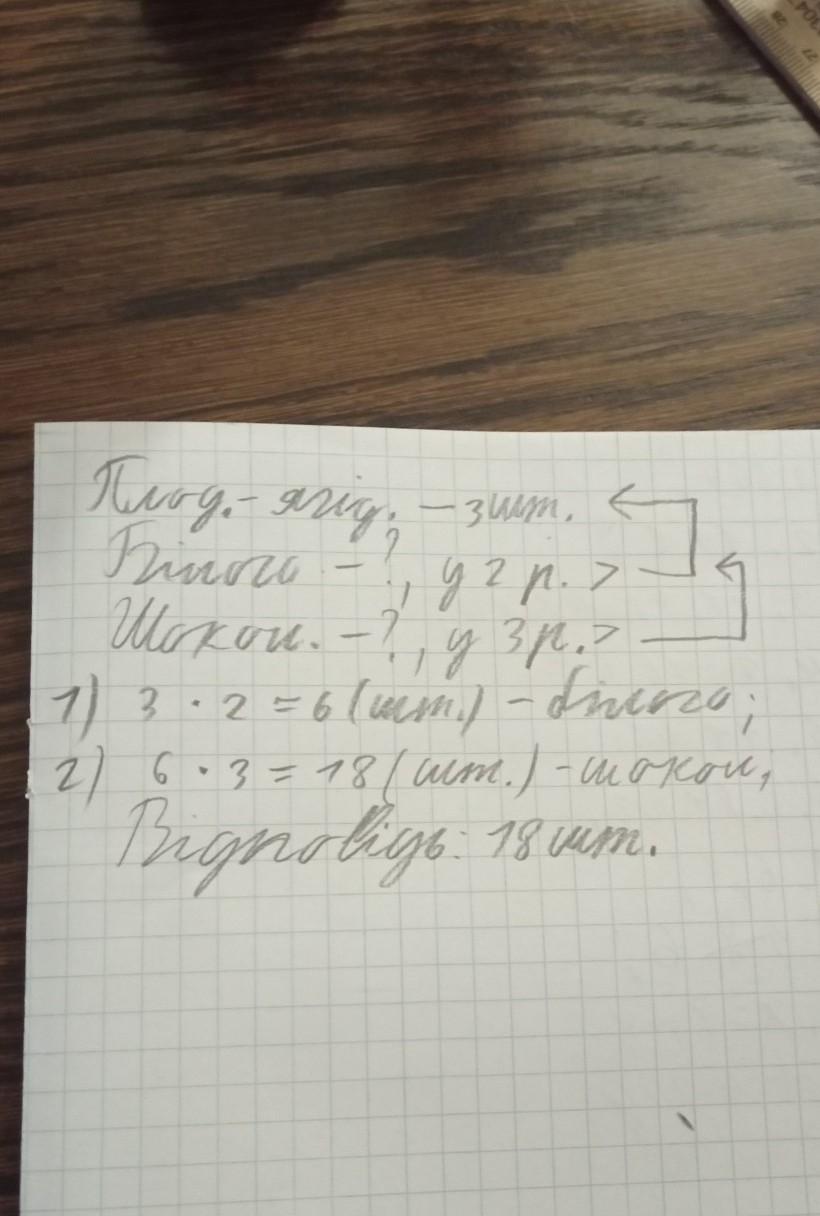 Плод.- ягід. – 3 шт.
Білого – ?, у 2 р. >
Шокол. – ?, у 3 р. >
1) 3 · 2 = 6 (шт.) – білого;
2) 6 · 3 = 18 (шт.) – шокол,
Відповідь: 18 шт.